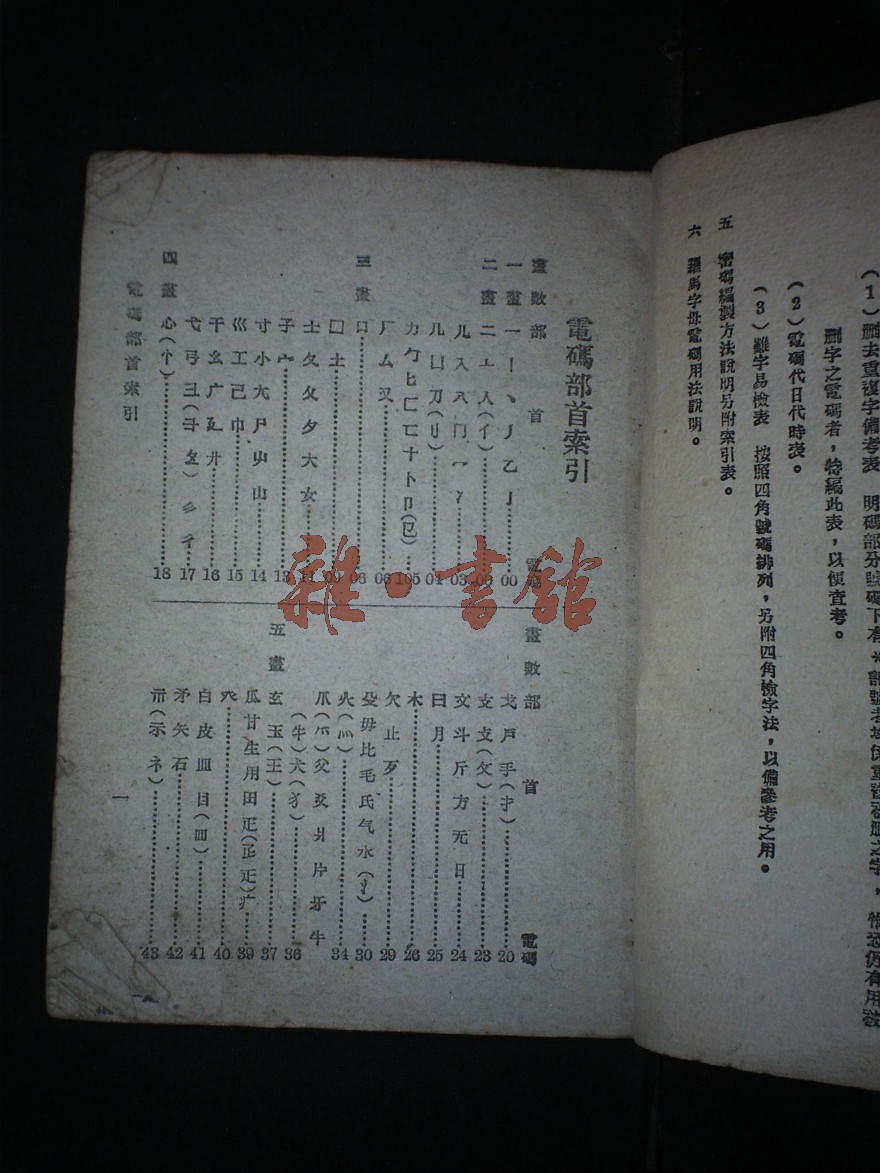 (1)刪去重復字備考表
刪字之電碼者,特編此表,以便查考。
(2)電碼代日代時表。
(3)難字易檢表 按照四角號碼排列,另附四角檢字法,以備參考之用。
五 密碼編製方法說明另附索引表。
六 羅馬字母電碼用法說明。
電碼部首索引
畫數部 首 電碼
一畫一丨丶丿乙亅 00
二畫二亠人(亻)
儿入八冂冖冫 03
几凵刀(刂) 04
力勹匕匚匸十卜卩(㔾)
厂厶又 06
三畫口 08
囗土 09
士夂夊夕大女 11
子宀 13
寸小尢尸屮山 14
巛工己巾 15
干幺广廴廾 16
弋弓彐(彑)彡彳 17
四畫心(忄) 18
畫數部 首 電碼
戈戶手(扌) 20
支攴(攵) 23
文斗斤方无日 24
曰月 25
木 26
欠止歹 29
殳毋比毛氏气水(氵) 30
火(灬) 34
爪(爫)父爻爿片牙牛
(牜)犬(犭) 36
五畫玄玉(王) 37
瓜甘生用田疋疒 39
癶 40
白皮皿目(罒) 41
矛矢石 42
示(礻) 43
電碼部首索引
一
雜·書館